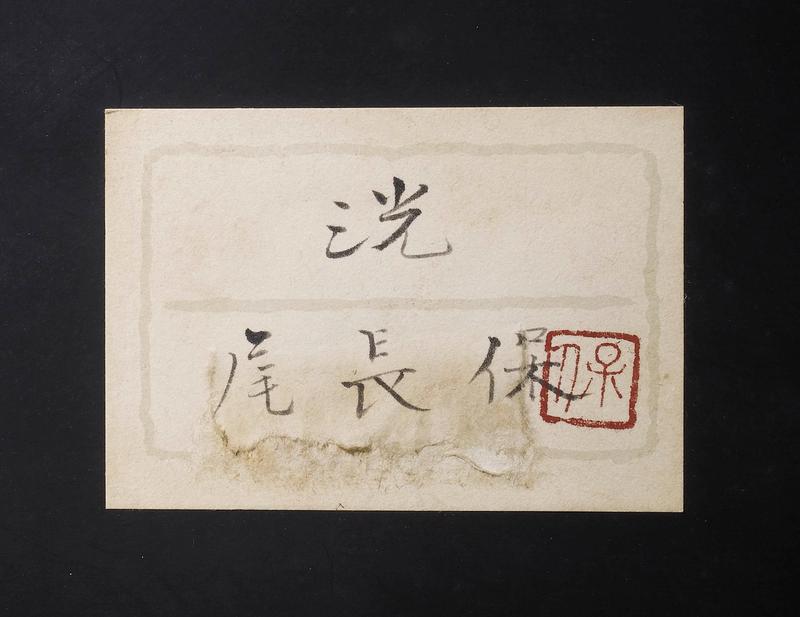 洸
尾長保
保